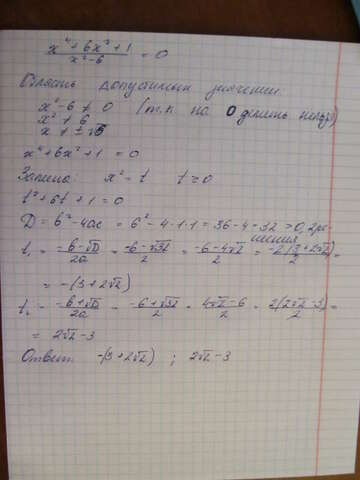 x⁴+6x²+1 / x²-6 = 0
Область допустимых значений
x²-6 ≠ 0 (т.к. на 0 делить нельзя)
x² ≠ 6
x ≠ ±√6
x⁴+6x²+1 = 0
Замена: x² = t t ≥ 0
t²+6t+1=0
D = b²-4ac = 6²-4·1·1 = 36-4=32 >0, 2 ре-
шения
t₁ = -b-√D / 2a = -6-√32 / 2 = -6-4√2 / 2 = -2(3+2√2) / 2 =
= -(3+2√2)
t₂ = -b+√D / 2a = -6+√32 / 2 = 4√2-6 / 2 = 2(2√2-3) / 2 =
= 2√2-3
Ответ: -(3+2√2) ; 2√2-3